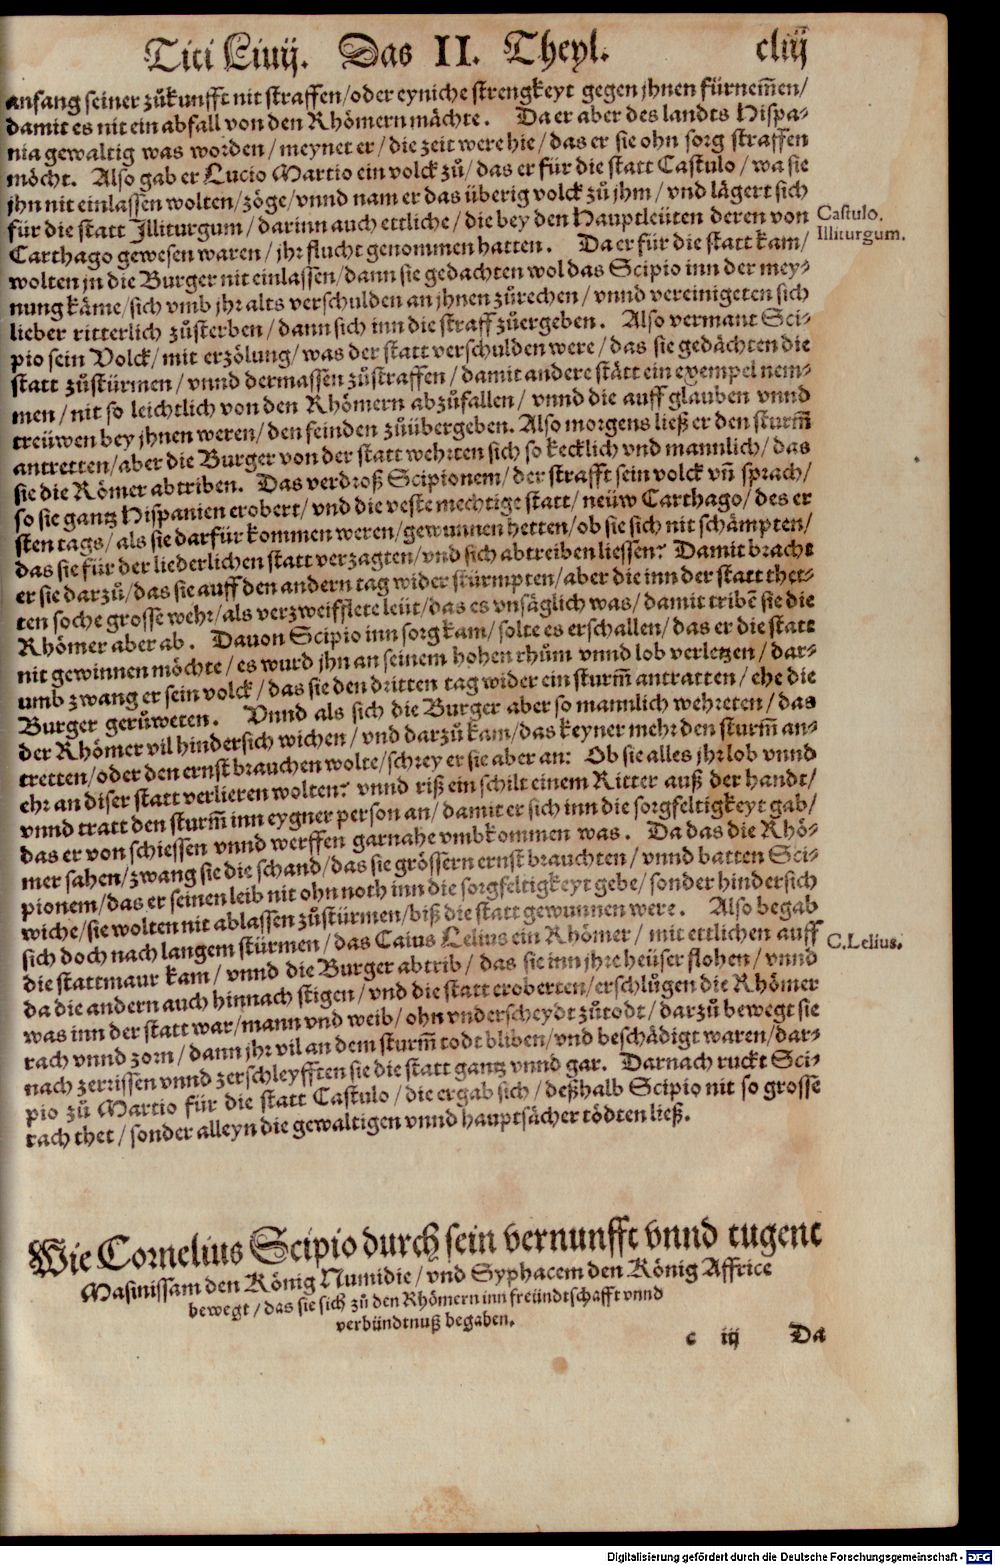 Titi Liuij. Das II. Theyl. cliij
anfang seiner zůkunfft nit straffen/oder eyniche strengkeyt gegen jhnen fürnem̃en/
damit es nit ein abfall von den Rhömern mächte. Da er aber des landts Hispa-
nia gewaltig was worden/meynet er/die zeit were hie/das er sie ohn sorg straffen
möcht. Also gab er Lucio Martio ein volck zů/das er für die statt Castulo/wa sie
jhn nit einlassen wolten/zöge/vnnd nam er das überig volck zů jhm/vnd lägert sich
für die statt Jlliturgum/darinn auch ettliche/die bey den Hauptleüten deren von
Castulo.
Illiturgum.
Carthago gewesen waren/jhr flucht genommen hatten. Da er für die statt kam/
wolten jn die Burger nit einlassen/dann sie gedachten wol das Scipio inn der mey-
nung käme/sich vmb jhr alts verschulden an jhnen zůrechen/vnnd vereinigeten sich
lieber ritterlich zůsterben/dann sich inn die straff zůergeben. Also vermant Sci-
pio sein Volck/mit erzölung/was der statt verschulden were/das sie gedächten die
statt zůstürmen/vnnd dermassen zůstraffen/damit andere stätt ein exempel nem-
men/nit so leichtlich von den Rhömern abzůfallen/vnnd die auff glauben vnnd
treüwen bey jhnen weren/den feinden zůübergeben. Also morgens ließ er den sturm̃
antretten/aber die Burger von der statt wehrten sich so kecklich vnd mannlich/das
sie die Römer abtriben. Das verdroß Scipionem/der strafft sein volck vñ sprach/
so sie gantz Hispanien erobert/vnd die veste mechtige statt/neüw Carthago/des er
sten tags/als sie darfür kommen weren/gewunnen hetten/ob sie sich nit schämpten/
das sie für der liederlichen statt verzagten/vnd sich abtreiben liessen? Damit bracht
er sie darzů/das sie auff den andern tag wider stürmpten/aber die inn der statt thet-
ten soche grosse wehr/als verzweifflete leüt/das es vnsäglich was/damit tribẽ sie die
Rhömer aber ab. Dauon Scipio inn sorg kam/solte es erschallen/das er die statt
nit gewinnen möchte/es wurd jhn an seinem hohen rhům vnnd lob verletzen/dar-
umb zwang er sein volck/das sie den dritten tag wider ein sturm̃ antratten/ehe die
Burger gerůweten. Vnnd als sich die Burger aber so mannlich wehreten/das
der Rhömer vil hindersich wichen/vnd darzů kam/das keyner mehr den sturm̃ an-
tretten/oder den ernst brauchen wolte/schrey er sie aber an: Ob sie alles jhr lob vnnd
ehr an diser statt verlieren wolten? vnnd riß ein schilt einem Ritter auß der handt/
vnnd tratt den sturm̃ inn eygner person an/damit er sich inn die sorgfeltigkeyt gab/
das er von schiessen vnnd werffen garnahe vmbkommen was. Da das die Rhö-
mer sahen/zwang sie die schand/das sie grössern ernst brauchten/vnnd batten Sci-
pionem/das er seinen leib nit ohn noth inn die sorgfeltigkeyt gebe/sonder hindersich
wiche/sie wolten nit ablassen zůstürmen/biß die statt gewunnen were. Also begab
sich doch nach langem stürmen/das Caius Lelius ein Rhömer/mit ettlichen auff
C.Lelius.
die stattmaur kam/vnnd die Burger abtrib/das sie inn jhre heüser flohen/vnnd
da die andern auch hinnach stigen/vnd die statt eroberten/erschlůgen die Rhömer
was inn der statt war/mann vnd weib/ohn vnderscheydt zůtodt/darzů bewegt sie
rach vnnd zorn/dann jhr vil an dem sturm̃ todt bliben/vnd beschädigt waren/dar-
nach zerrissen vnnd zerschleyfften sie die statt gantz vnnd gar. Darnach ruckt Sci-
pio zů Martio für die statt Castulo/die ergab sich/deßhalb Scipio nit so grosse
rach thet/sonder alleyn die gewaltigen vnnd hauptsächer tödten ließ.
Wie Cornelius Scipio durch sein vernunfft vnnd tugent
Masinissam den König Numidie/vnd Syphacem den König Affrice
bewegt/das sie sich zů den Rhömern inn freündtschafft vnnd
verbündtnuß begaben.
c iij Da
Digitalisierung gefördert durch die Deutsche Forschungsgemeinschaft - DFG